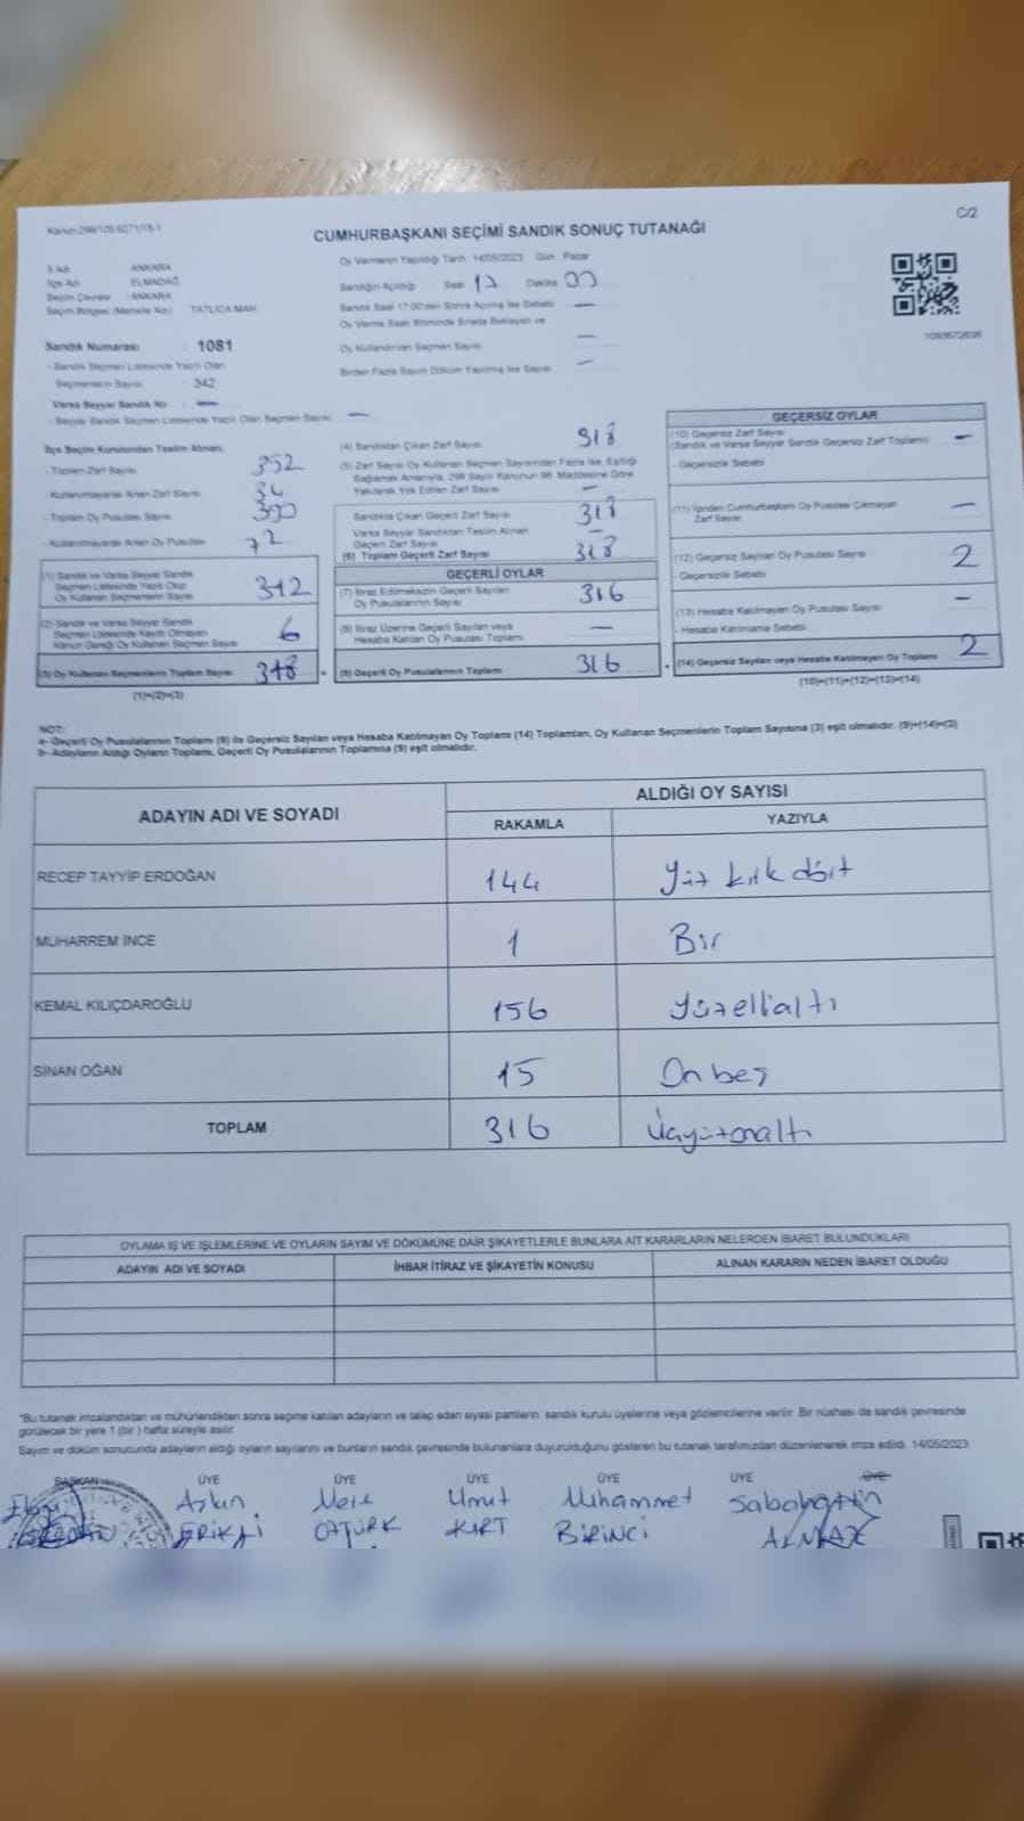 C/2
Kanun 298/105 6271/18-1
CUMHURBAŞKANI SEÇİMİ SANDIK SONUÇ TUTANAĞI
İl Adı ANKARA
İlçe Adı ELMADAĞ
Seçim Çevresi ANKARA
Seçim Bölgesi (Mahalle Adı) TATLICA MAH.
Sandık Numarası : 1081
- Sandık Seçmen Listesinde Yazılı Olan
Seçmenlerin Sayısı : 342
Varsa Seyyar Sandık No : —
- Seyyar Sandık Seçmen Listesinde Yazılı Olan Seçmen Sayısı —
Oy Vermenin Yapıldığı Tarih 14/05/2023 Gün Pazar
Sandığın Açıldığı Saat 17 Dakika 00
Sandık Saat 17:00'den Sonra Açılmış İse Sebebi —
Oy Verme Saati Bitiminde Sırada Bekleyen ve
Oy Kullandırılan Seçmen Sayısı —
Birden Fazla Sayım Döküm Yapılmış İse Sayısı —
İlçe Seçim Kurulundan Teslim Alınan;
- Toplam Zarf Sayısı 352
- Kullanılmayarak Artan Zarf Sayısı 34
- Toplam Oy Pusulası Sayısı
- Kullanılmayarak Artan Oy Pusulası 72
(1) Sandık ve Varsa Seyyar Sandık
Seçmen Listesinde Yazılı Olup
Oy Kullanan Seçmenlerin Sayısı 312
(2) Sandık ve Varsa Seyyar Sandık
Seçmen Listesinde Kayıtlı Olmayan
Kanun Gereği Oy Kullanan Seçmen Sayısı 6
(3) Oy Kullanan Seçmenlerin Toplam Sayısı
(1)+(2)=(3)
(4) Sandıktan Çıkan Zarf Sayısı 318
(5) Zarf Sayısı Oy Kullanan Seçmen Sayısından Fazla İse, Eşitliği
Sağlamak Amacıyla, 298 Sayılı Kanunun 98. Maddesine Göre
Yakılarak Yok Edilen Zarf Sayısı —
Sandıkta Çıkan Geçerli Zarf Sayısı 318
Varsa Seyyar Sandıktan Teslim Alınan
Geçerli Zarf Sayısı —
(6) Toplam Geçerli Zarf Sayısı 318
GEÇERLİ OYLAR
(7) İtiraz Edilmeksizin Geçerli Sayılan
Oy Pusulalarının Sayısı 316
(8) İtiraz Üzerine Geçerli Sayılan veya
Hesaba Katılan Oy Pusulası Toplamı —
(9) Geçerli Oy Pusulalarının Toplamı 316
GEÇERSİZ OYLAR
(10) Geçersiz Zarf Sayısı
(Sandık ve Varsa Seyyar Sandık Geçersiz Zarf Toplamı) —
- Geçersizlik Sebebi
(11) İçinden Cumhurbaşkanı Oy Pusulası Çıkmayan
Zarf Sayısı —
(12) Geçersiz Sayılan Oy Pusulası Sayısı 2
- Geçersizlik Sebebi
(13) Hesaba Katılmayan Oy Pusulası Sayısı —
- Hesaba Katılmama Sebebi
(14) Geçersiz Sayılan veya Hesaba Katılmayan Oy Toplamı 2
(10)+(11)+(12)+(13)=(14)
NOT:
a- Geçerli Oy Pusulalarının Toplamı (9) ile Geçersiz Sayılan veya Hesaba Katılmayan Oy Toplamı (14) Toplamları, Oy Kullanan Seçmenlerin Toplam Sayısına (3) eşit olmalıdır. (9)+(14)=(3)
b- Adayların Aldığı Oyların Toplamı, Geçerli Oy Pusulalarının Toplamına (9) eşit olmalıdır.
ADAYIN ADI VE SOYADI ALDIĞI OY SAYISI
RAKAMLA YAZIYLA
RECEP TAYYİP ERDOĞAN 144 Yüz kırk dört
MUHARREM İNCE 1 Bir
KEMAL KILIÇDAROĞLU 156 Yüzellialtı
SİNAN OĞAN 15 On beş
TOPLAM 316 Üçyüzonaltı
OYLAMA İŞ VE İŞLEMLERİNE VE OYLARIN SAYIM VE DÖKÜMÜNE DAİR ŞİKAYETLERLE BUNLARA AİT KARARLARIN NELERDEN İBARET BULUNDUKLARI
ADAYIN ADI VE SOYADI İHBAR İTİRAZ VE ŞİKAYETİN KONUSU ALINAN KARARIN NEDEN İBARET OLDUĞU
"Bu tutanak imzalandıktan ve mühürlendikten sonra seçime katılan adayların ve talep eden siyasi partilerin sandık kurulu üyelerine veya gözlemcilerine verilir. Bir nüshası da sandık çevresinde
görülecek bir yere 1 (bir) hafta süreyle asılır.
Sayım ve döküm sonucunda adayların aldığı oyların sayılarını ve bunların sandık çevresinde bulunanlara duyurulduğunu gösteren bu tutanak tarafımızdan düzenlenerek imza edildi. 14/05/2023
BAŞKAN ÜYE ÜYE ÜYE ÜYE ÜYE ÜYE
Aşkın Umut Muhammet Sabahattin
KURT BİRİNCİ